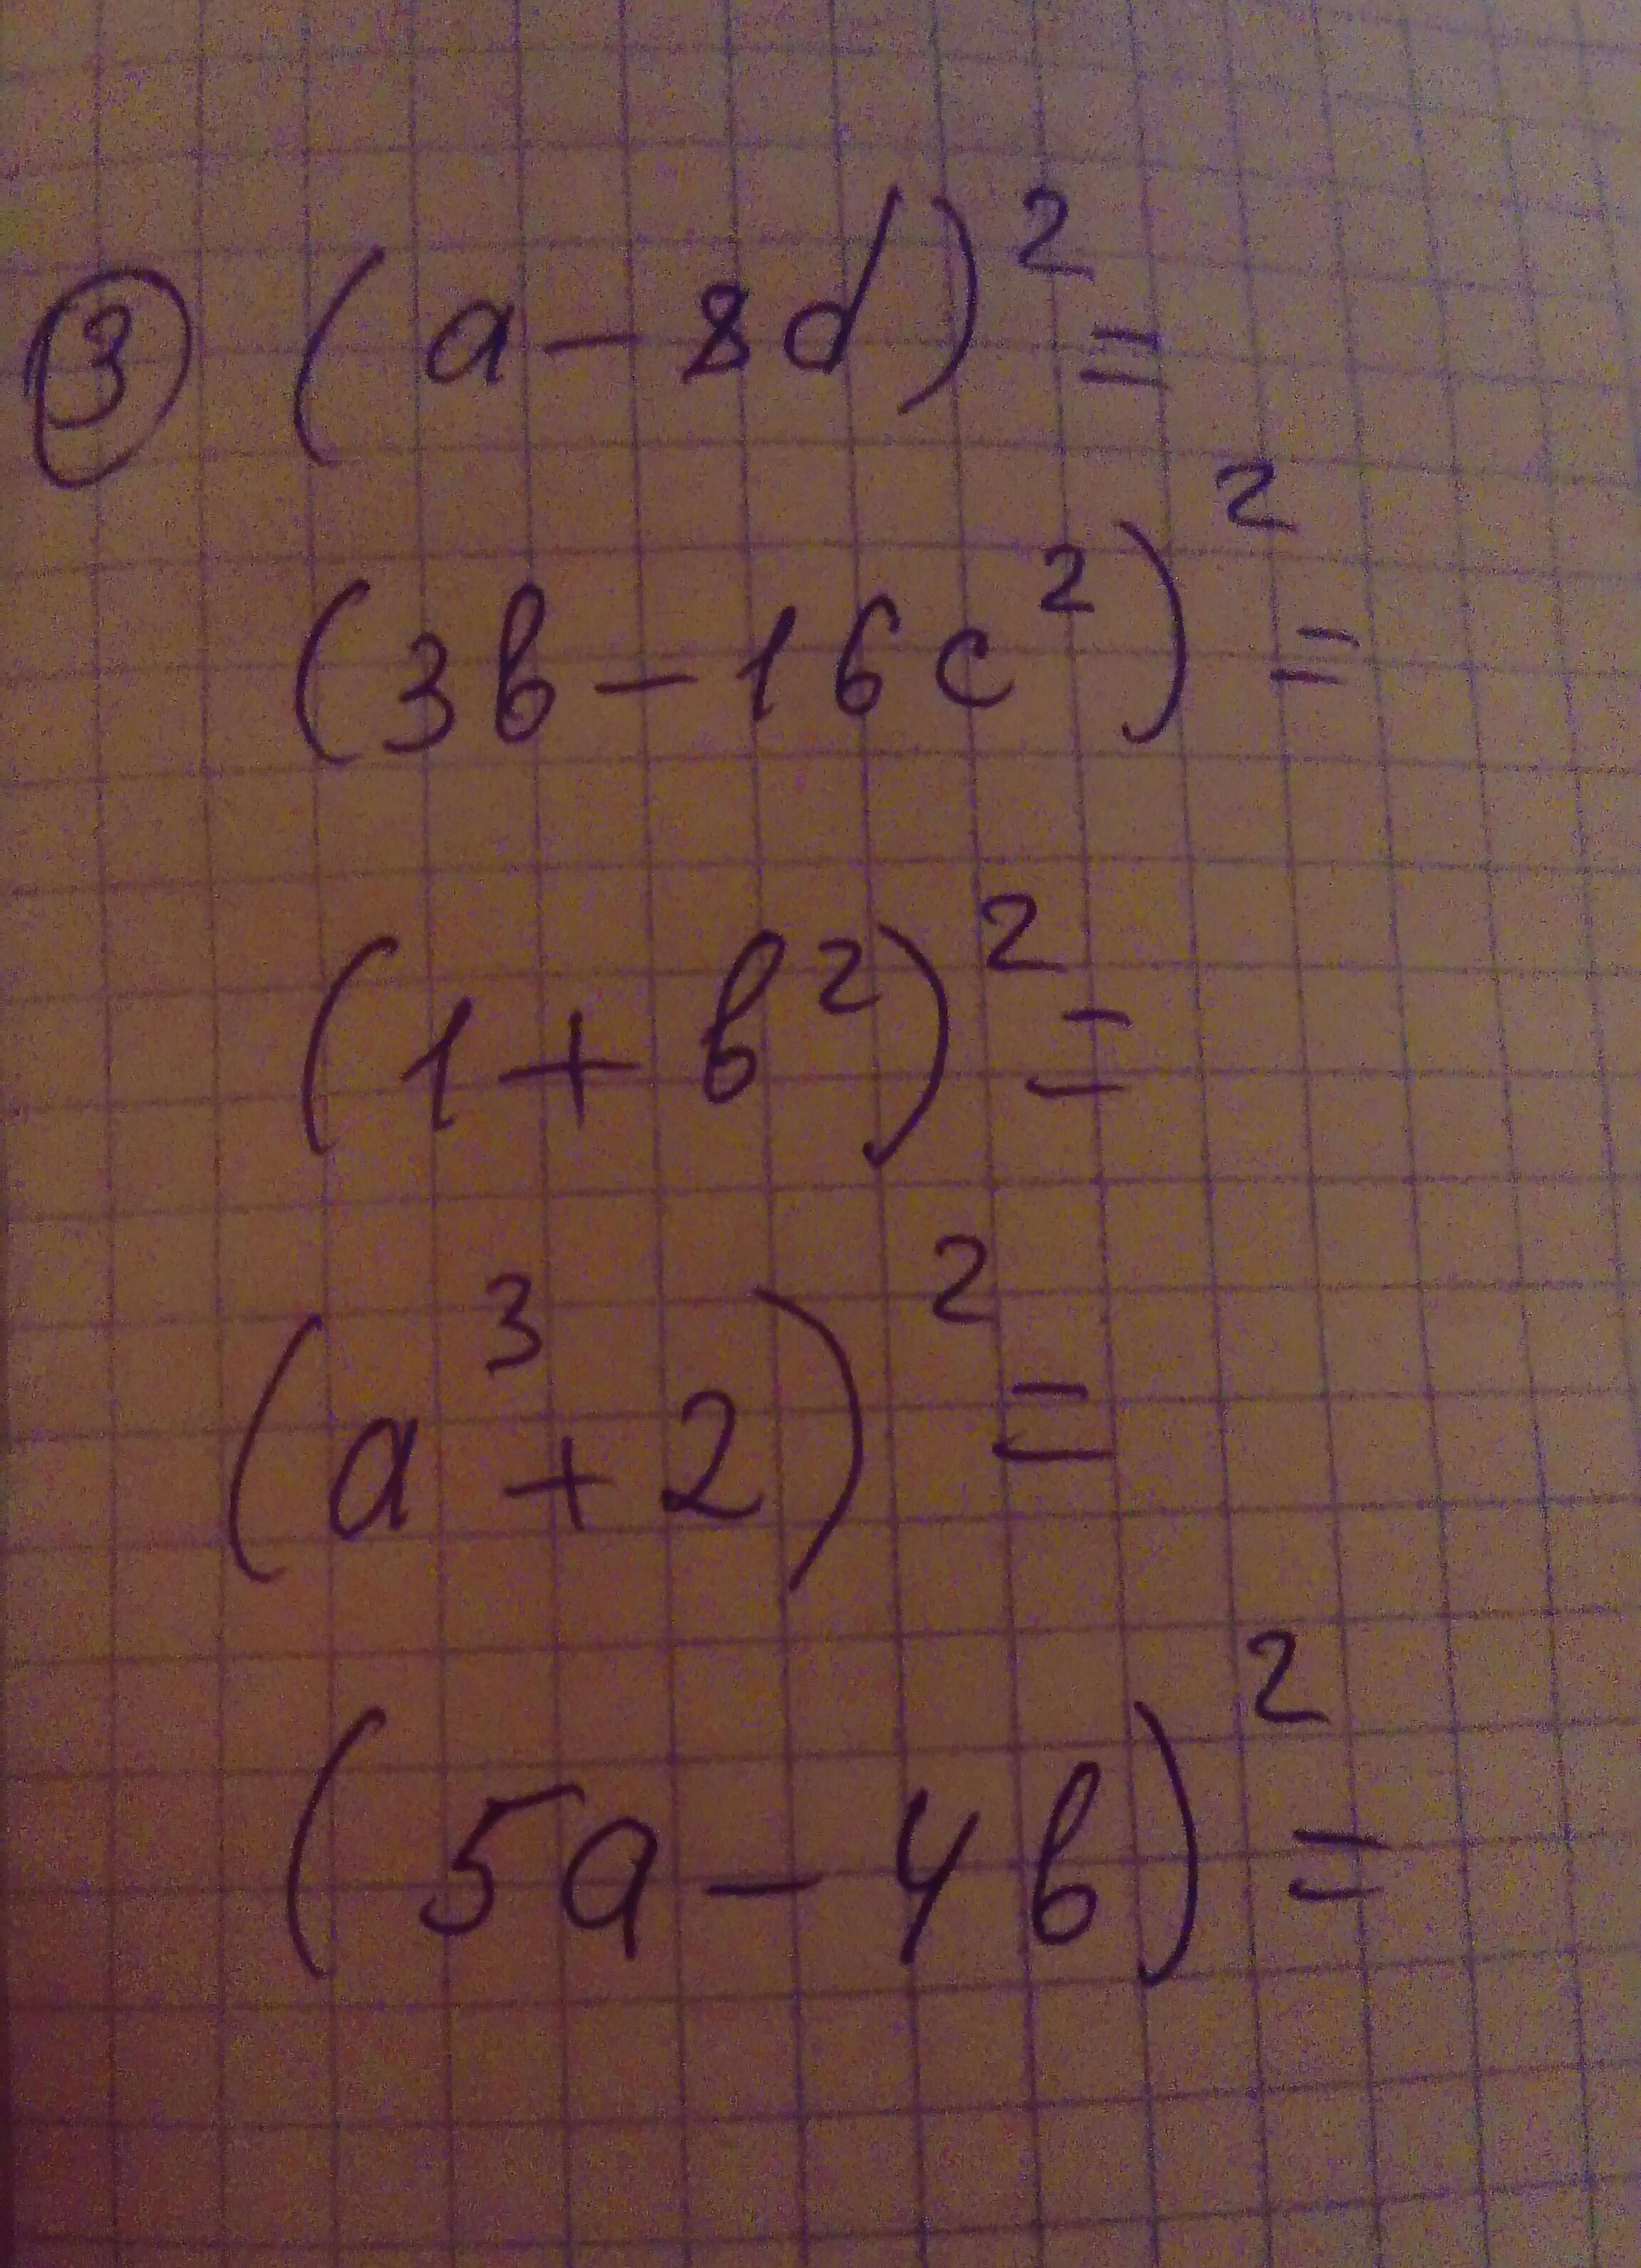 ③ (a - 8d)² =
(3b - 16c²)² =
(1 + b²)² =
(a³ + 2)² =
(5a - 4b)² =